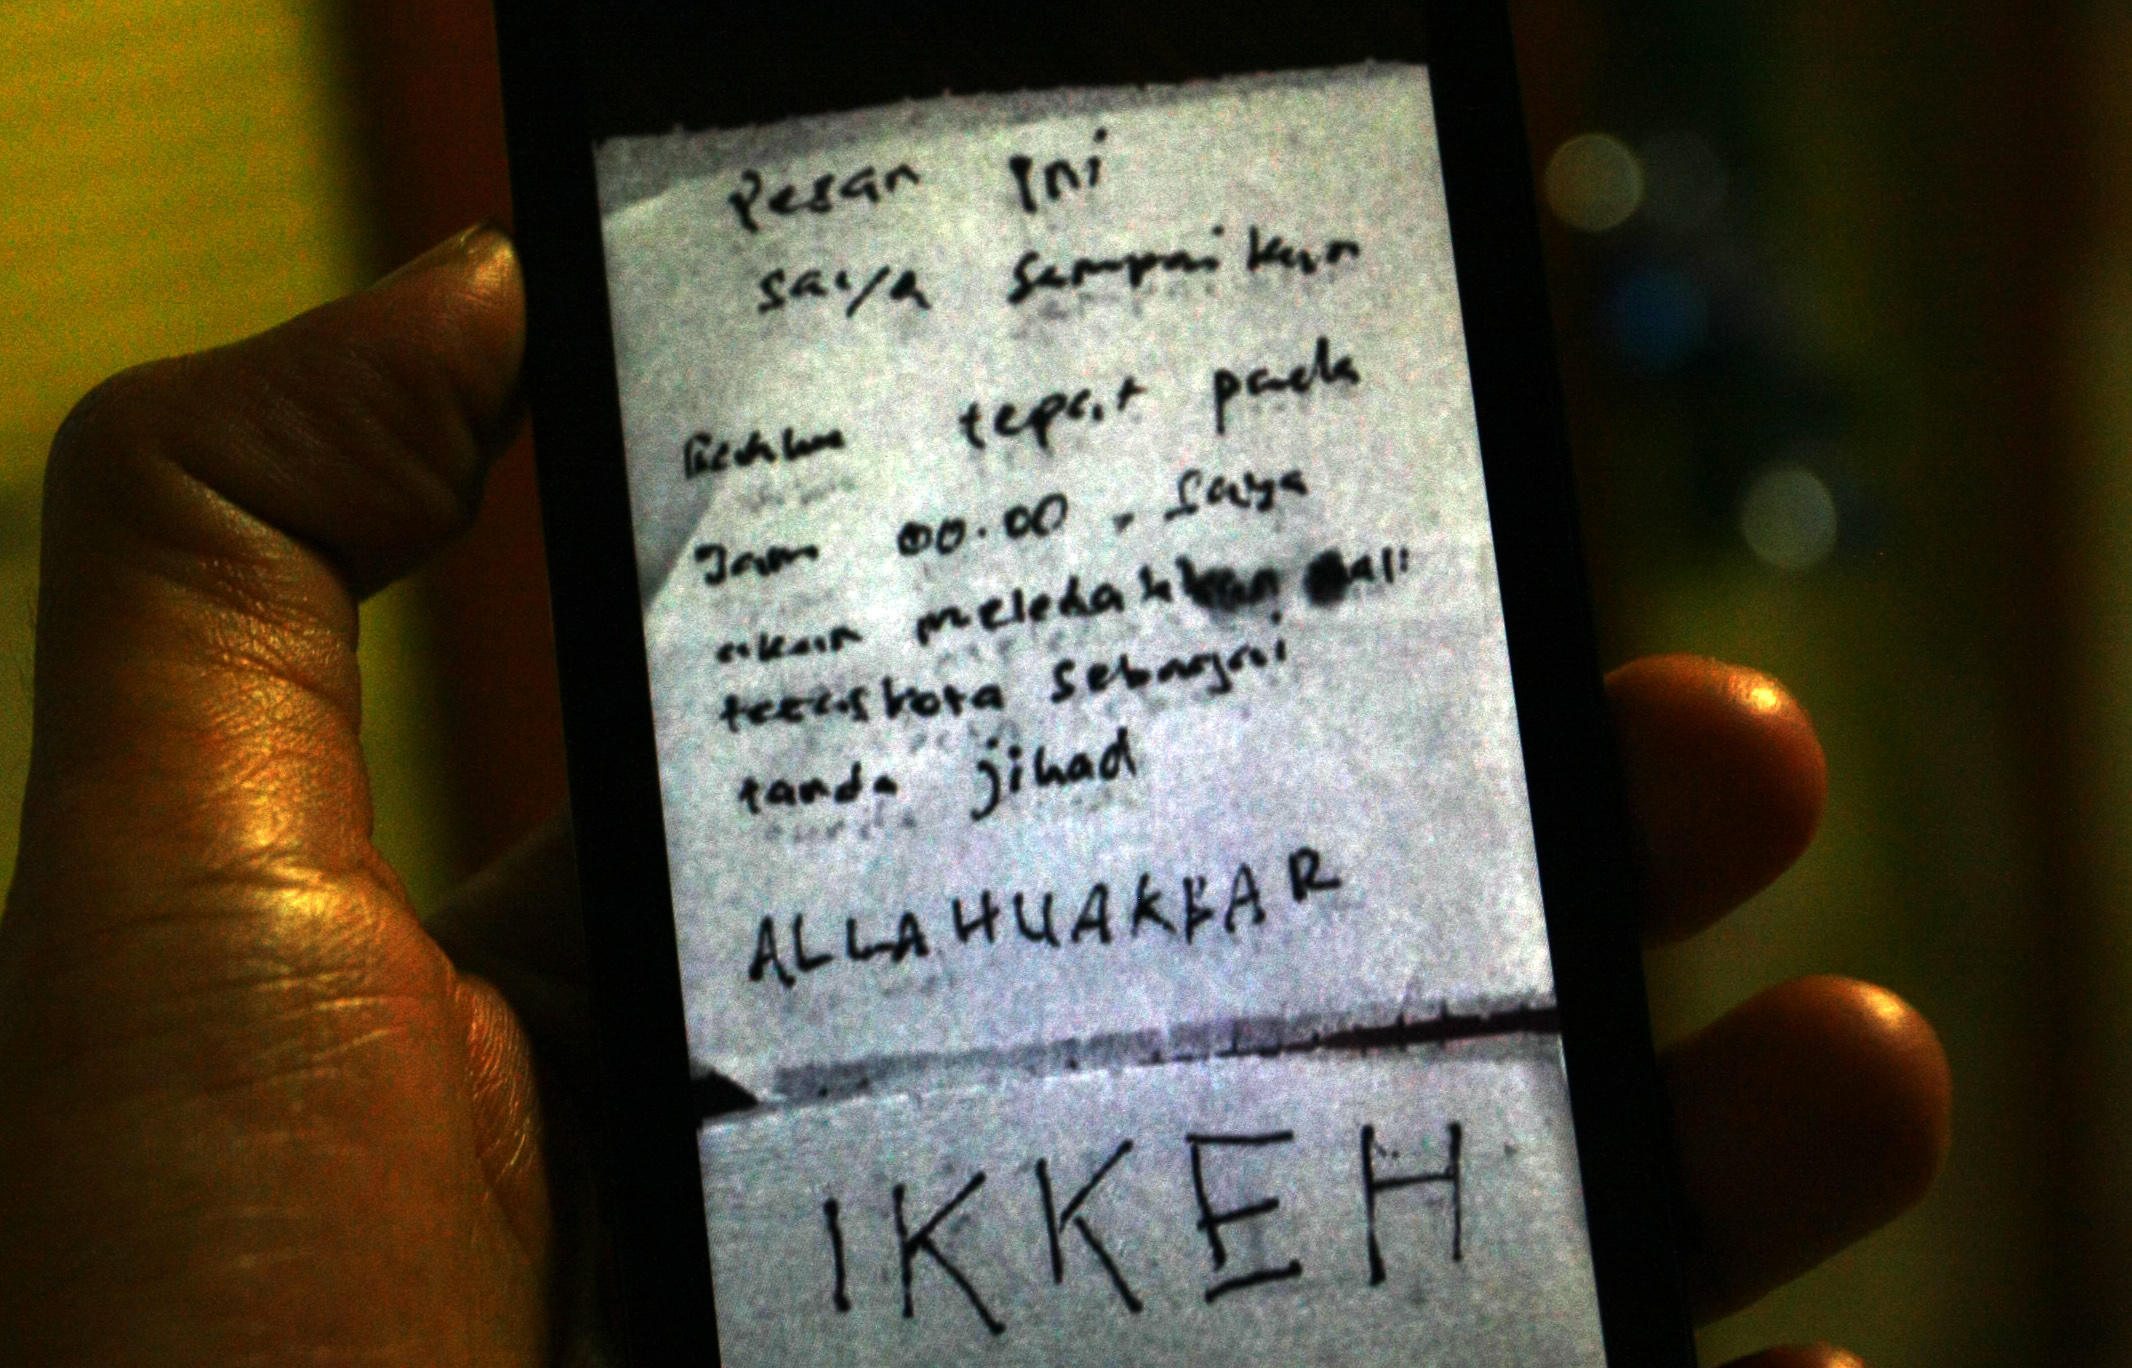 Pesan Ini
saya sampaikan
Bahwa tepat pada
Jam 00.00, saya
akan meledakkan
kota sebagai
tanda jihad
ALLAHUAKBAR
IKKEH